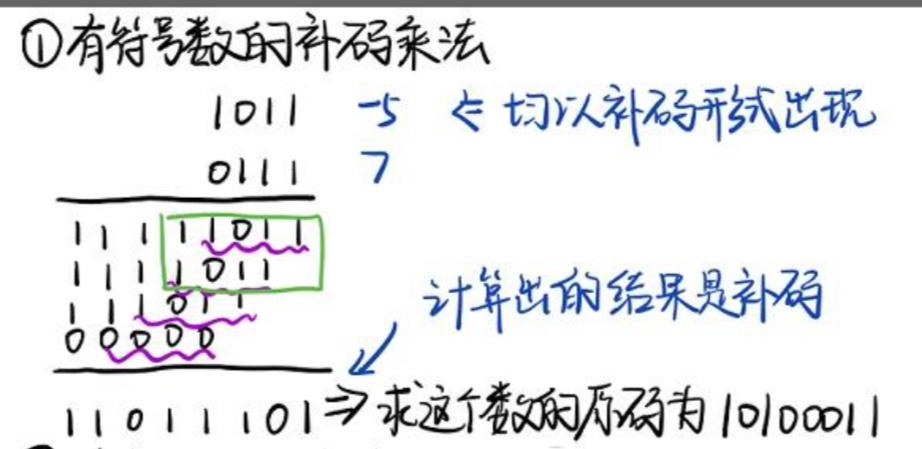 ①有符号数的补码乘法
1011 -5 ⇐ 均以补码形式出现
0111 7
11111011
1111011
111011
00000
计算出的结果是补码
11011101 ⇒ 求这个数的原码为10100011